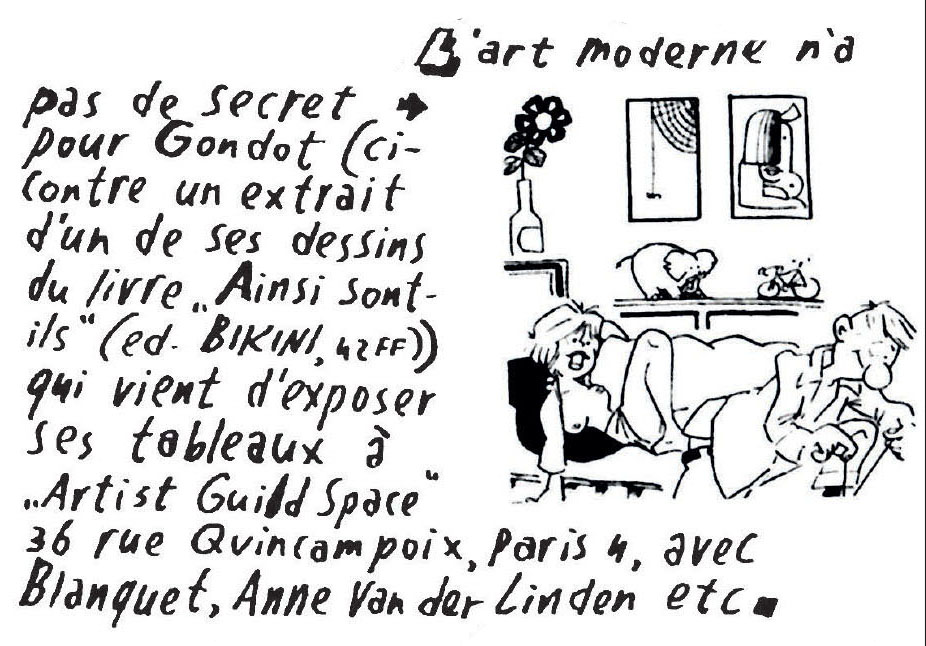 L'art moderne n'a
pas de secret →
pour Gondot (ci-
contre un extrait
d'un de ses dessins
du livre „Ainsi sont-
ils" (ed. BIKINI, 42FF))
qui vient d'exposer
ses tableaux à
„Artist Guild Space"
36 rue Quincampoix, Paris 4, avec
Blanquet, Anne Van der Linden etc.